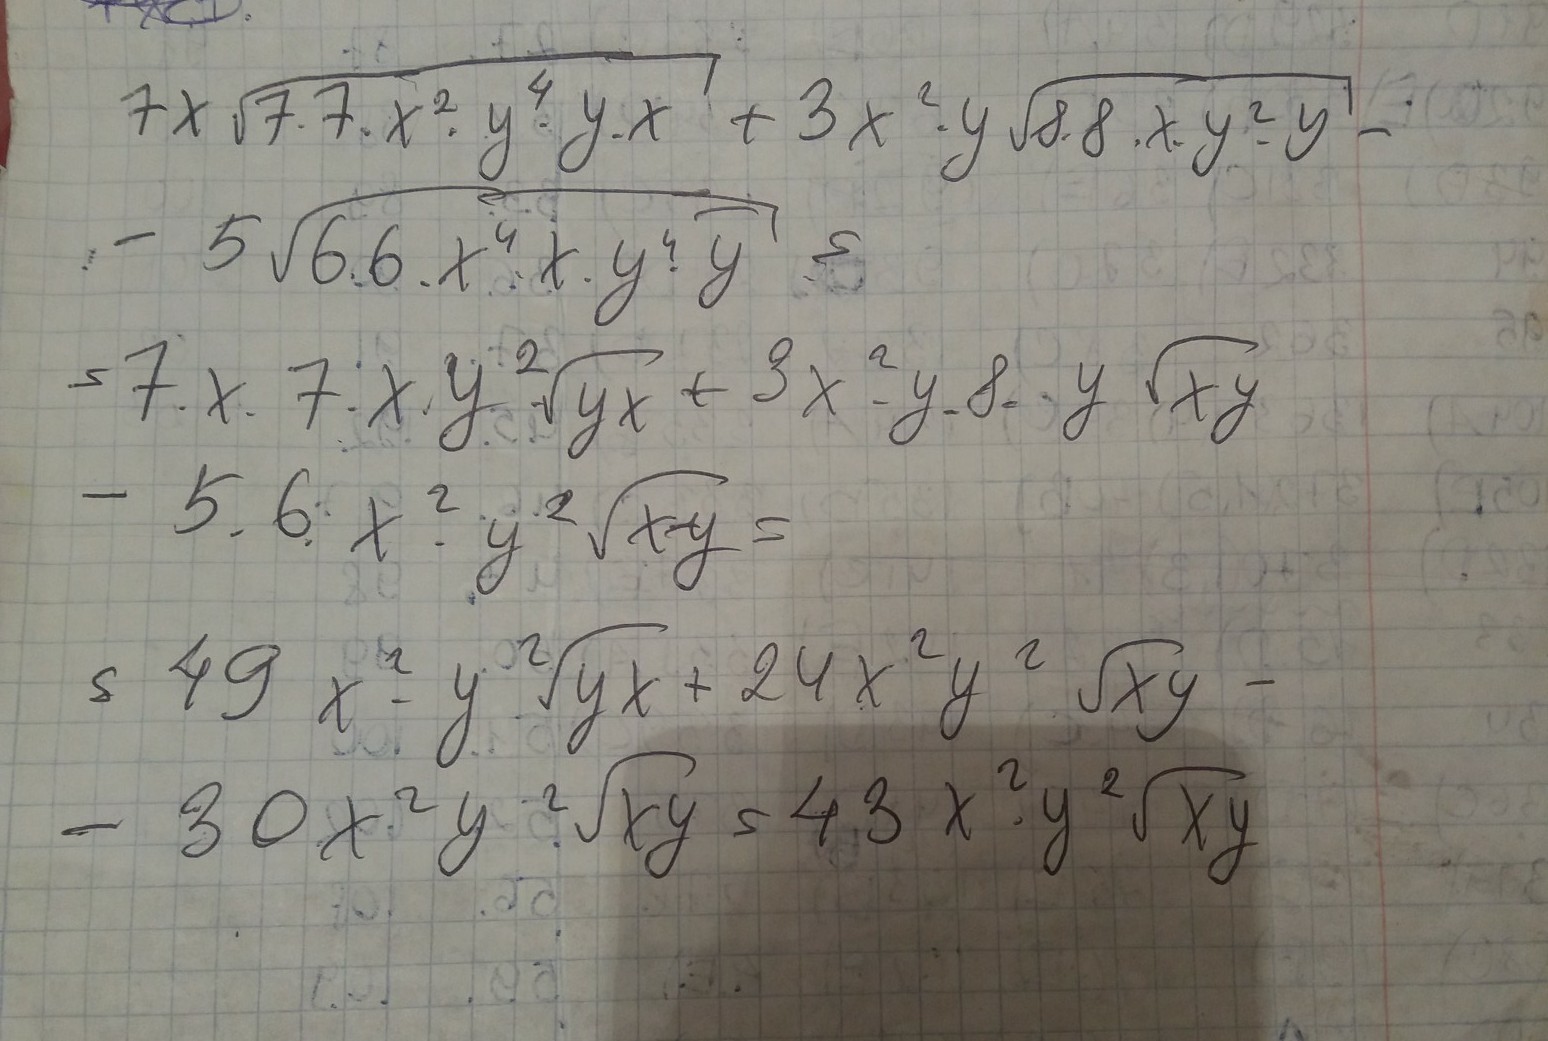 7x√7·7·x²·y⁴·y·x + 3x²·y√8·8·x·y²·y -
- 5√6·6·x⁴·x·y⁴·y =
= 7·x·7·x·y²√yx + 3x²·y·8·y√xy
- 5·6·x²·y²√x·y =
= 49x²·y²√yx + 24x²y²√xy -
- 30x²y²√xy = 43x²·y²√xy